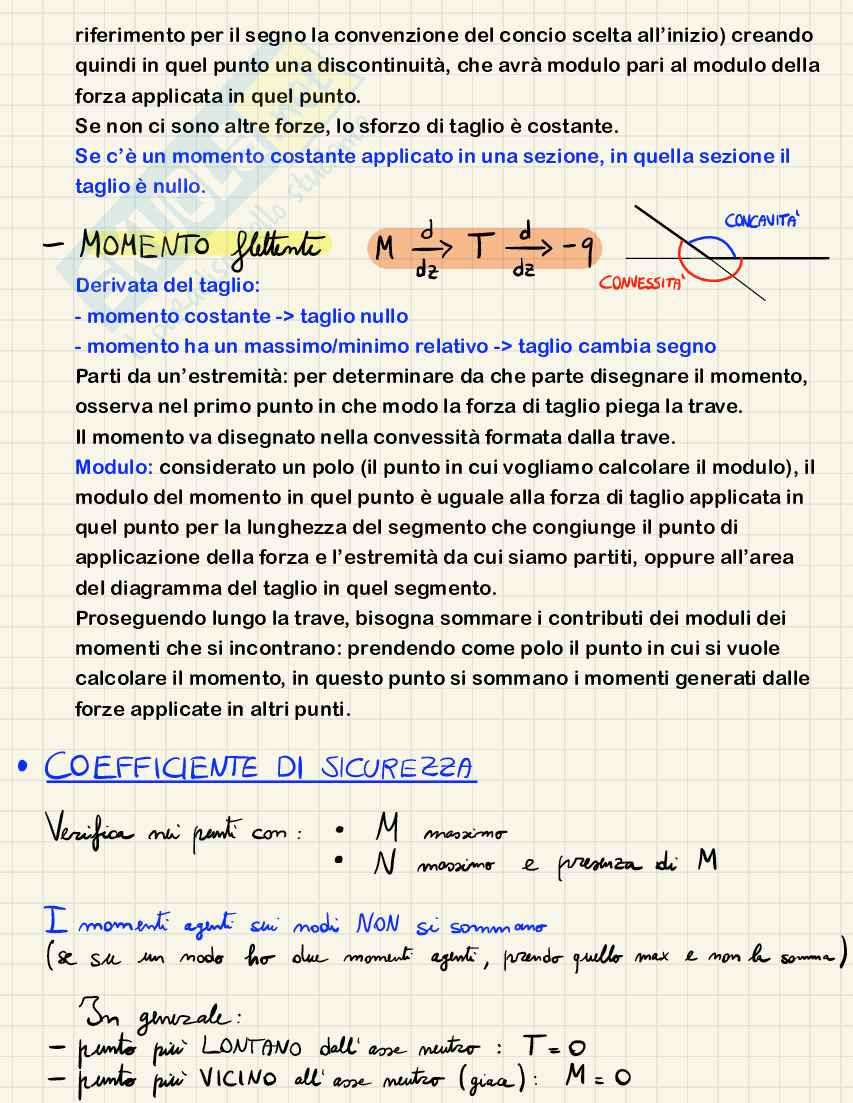 riferimento per il segno la convenzione del concio scelta all'inizio) creando
quindi in quel punto una discontinuità, che avrà modulo pari al modulo della
forza applicata in quel punto.
Se non ci sono altre forze, lo sforzo di taglio è costante.
Se c'è un momento costante applicato in una sezione, in quella sezione il
taglio è nullo.
- MOMENTO flettente M d/dz -> T d/dz -> -q
CONCAVITA'
CONVESSITA'
Derivata del taglio:
- momento costante -> taglio nullo
- momento ha un massimo/minimo relativo -> taglio cambia segno
Parti da un'estremità: per determinare da che parte disegnare il momento,
osserva nel primo punto in che modo la forza di taglio piega la trave.
Il momento va disegnato nella convessità formata dalla trave.
Modulo: considerato un polo (il punto in cui vogliamo calcolare il modulo), il
modulo del momento in quel punto è uguale alla forza di taglio applicata in
quel punto per la lunghezza del segmento che congiunge il punto di
applicazione della forza e l'estremità da cui siamo partiti, oppure all'area
del diagramma del taglio in quel segmento.
Proseguendo lungo la trave, bisogna sommare i contributi dei moduli dei
momenti che si incontrano: prendendo come polo il punto in cui si vuole
calcolare il momento, in questo punto si sommano i momenti generati dalle
forze applicate in altri punti.
• COEFFICIENTE DI SICUREZZA
Verifica nei punti con: • M massimo
• N massimo e presenza di M
I momenti agenti sui nodi NON si sommano
(se su un nodo ho due momenti agenti, prendo quello max e non la somma)
In generale:
- punto più LONTANO dall'asse neutro: T=0
- punto più VICINO all'asse neutro (giac): M=0